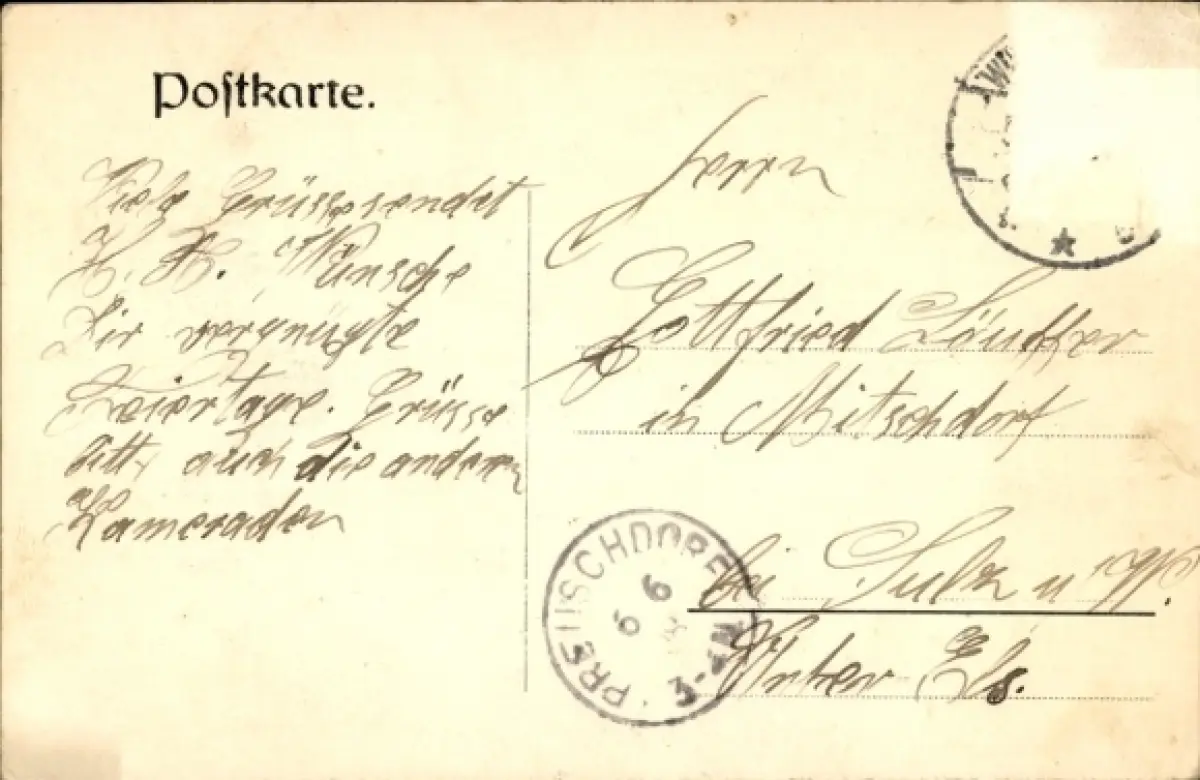 Postkarte.
Viele Grüsse sendet
K. K. Wünsche
Dir vergnügte
Feiertage. Grüsse
bitte auch die andern
Kameraden
Herrn
Gottfried
in Mitschdorf
bei Sulz u/W.
Unter Els.
PREUSCHDORF
6 6
3-4N